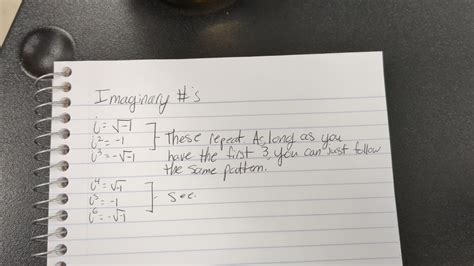 Imaginary #'s
i = √-1
i² = -1
i³ = -√-1
These repeat As long as you
have the first 3, you can just follow
the same pattern.
i⁴ = √-1
i⁵ = -1
i⁶ = -√-1
See.